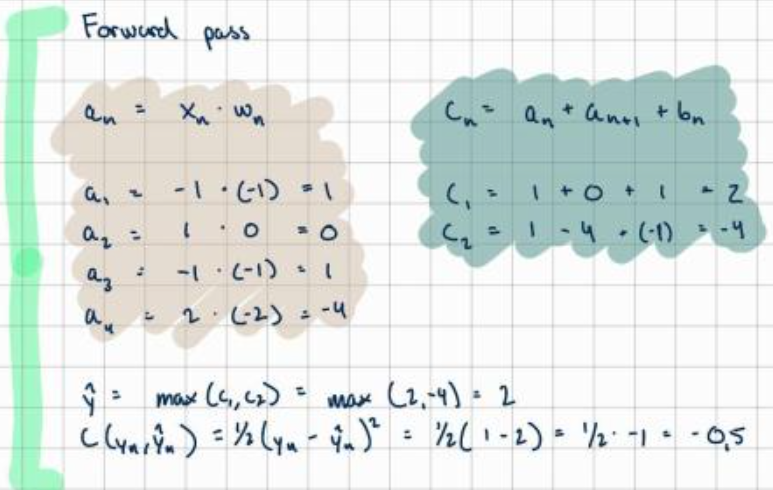 Forward pass
aₙ = xₙ · wₙ
a₁ = -1 · (-1) = 1
a₂ = 1 · 0 = 0
a₃ = -1 · (-1) = 1
a₄ = 2 · (-2) = -4
cₙ = aₙ + aₙ₊₁ + bₙ
c₁ = 1 + 0 + 1 = 2
c₂ = 1 - 4 · (-1) = -4
ŷ = max(c₁, c₂) = max(2, -4) = 2
C(yₙ, ŷₙ) = 1/2(yₙ - ŷₙ)² = 1/2(1 - 2) = 1/2 · -1 = -0,5